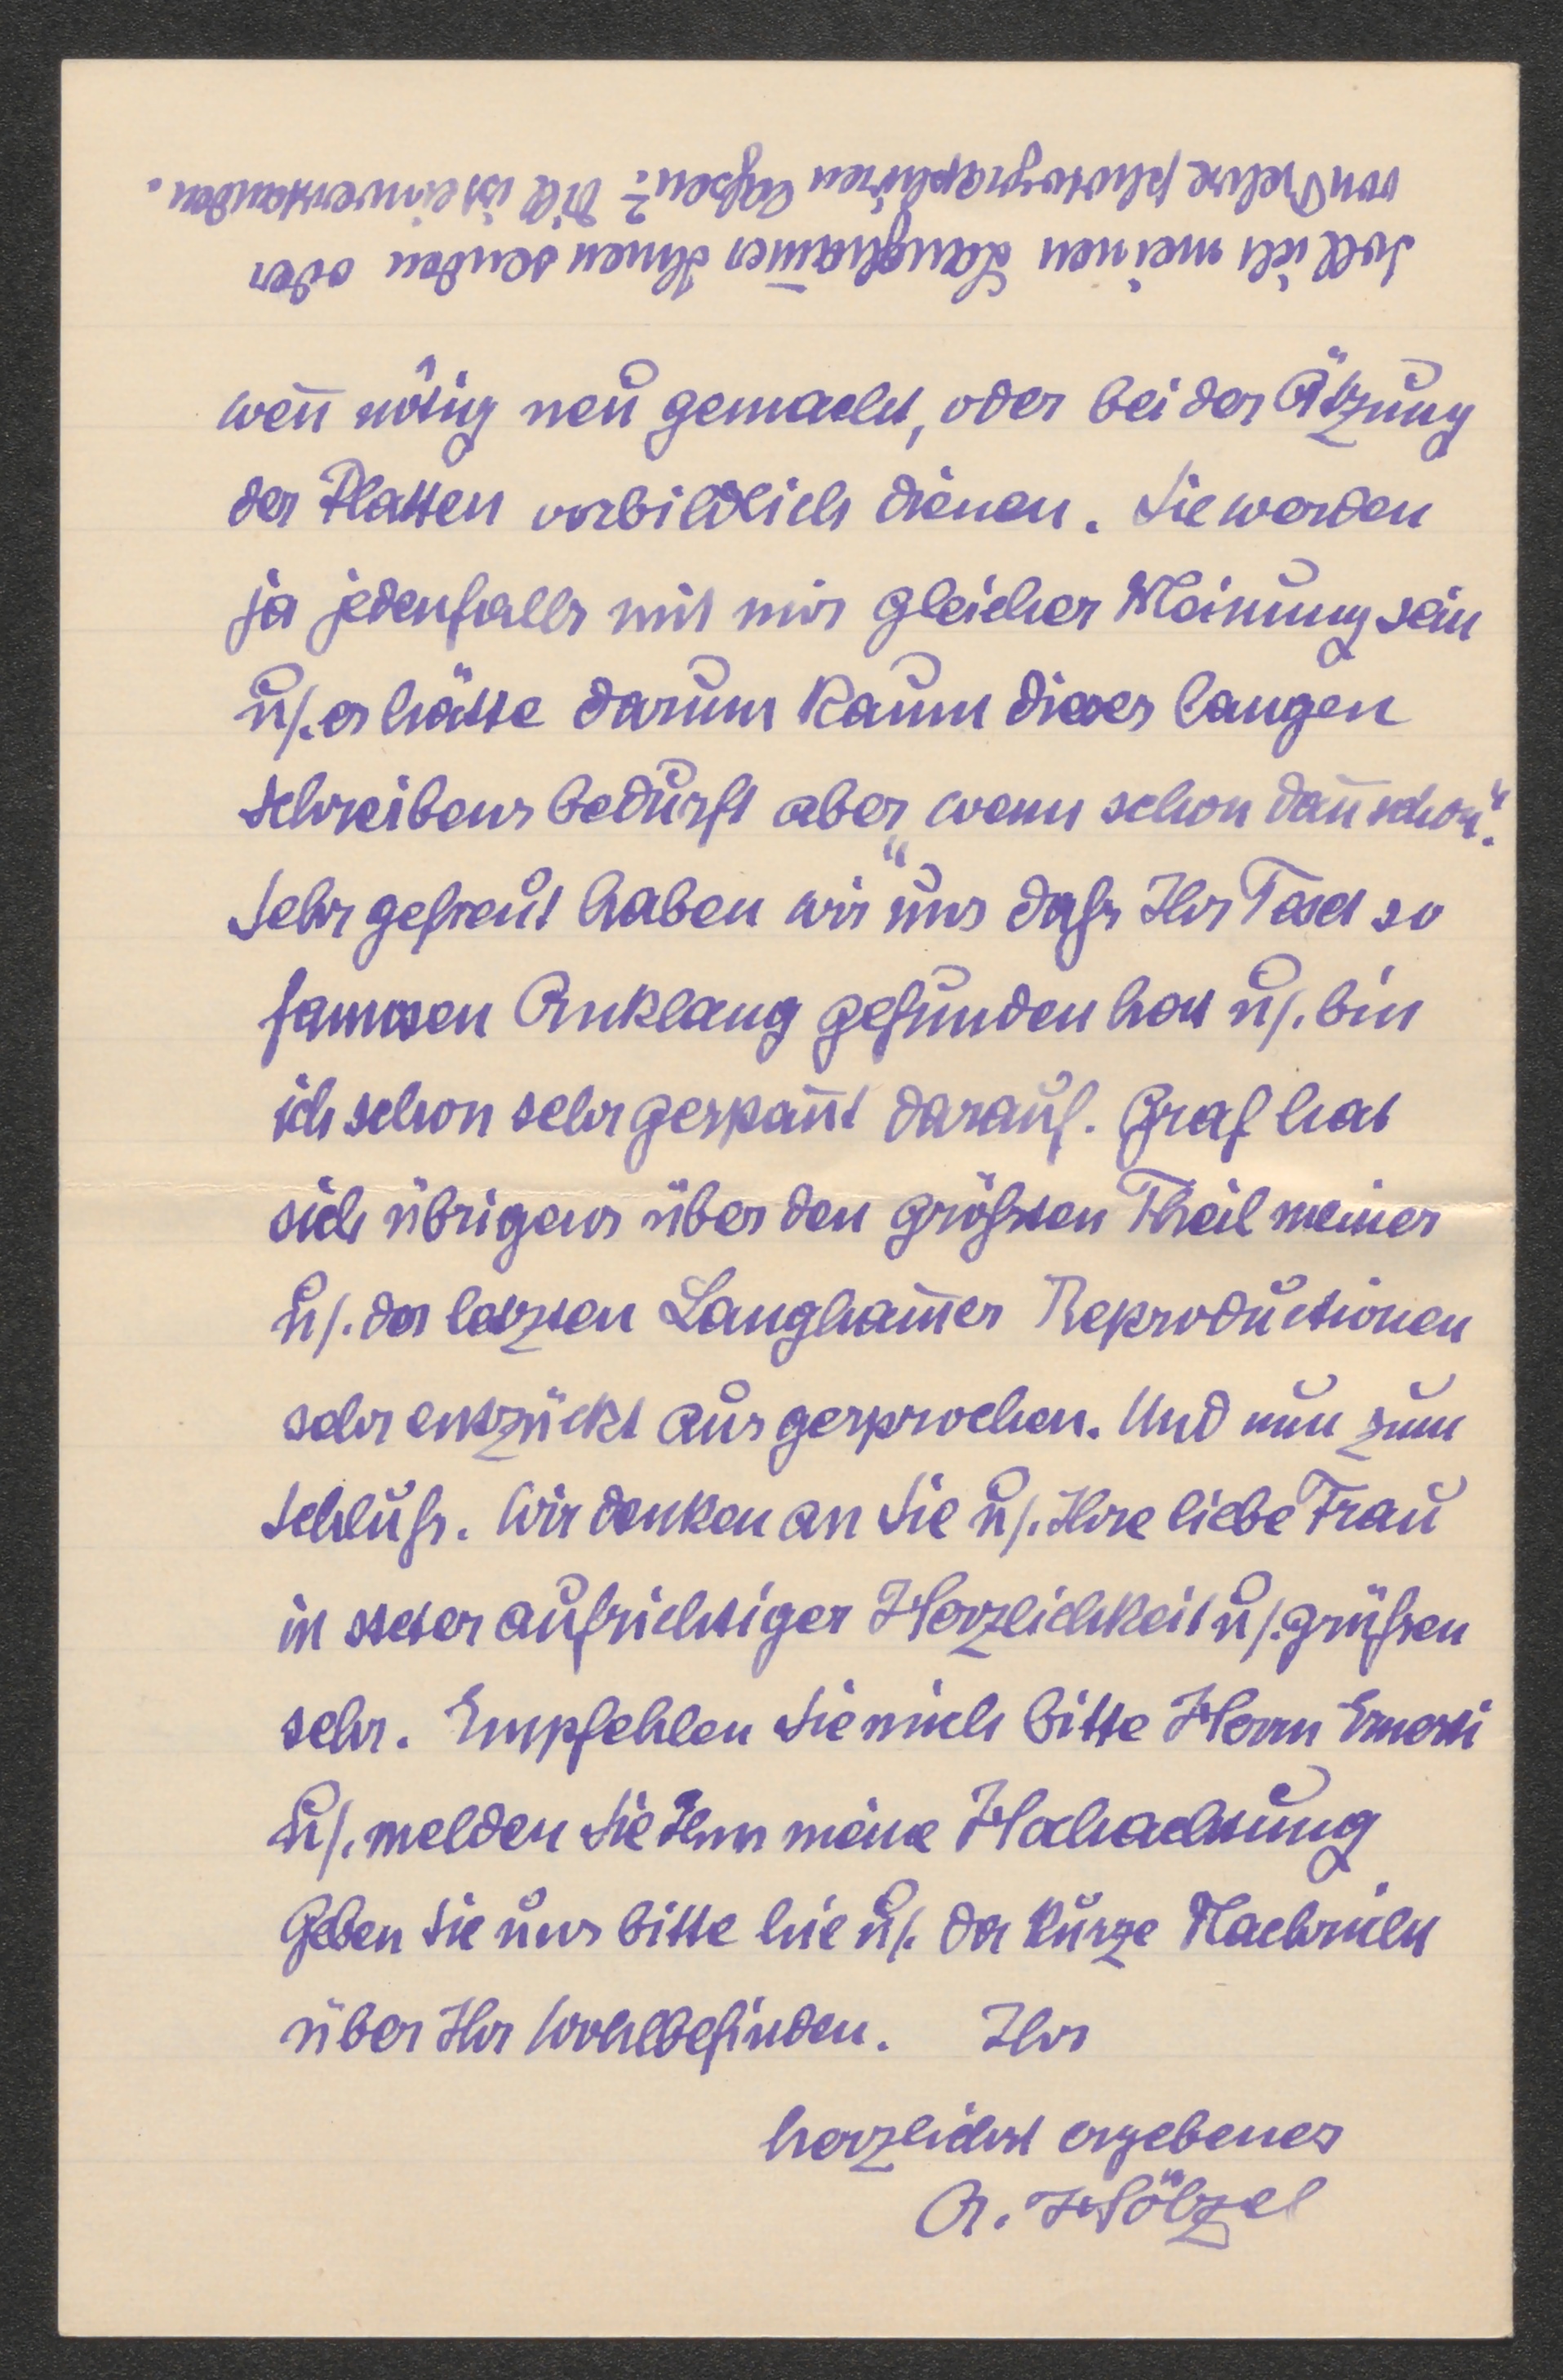 Soll ich meinen Langham̅er Ihnen senden oder
von Dehre photographiren lassen? Dill ist einverstanden.
wen̅ nötig neu gemacht, oder bei der Ätzung
der Platten vorbildlich dienen. Sie werden
ja jedenfalls mit mir gleicher Meinung sein
u/. es hätte darum kaum dieses langen
Schreibens bedurft aber „wenn schon dan̅ schon“.
Sehr gefreut haben wir uns daß Ihr Text so
famosen Anklang gefunden hat u/. bin
ich schon sehr gespan̅t darauf. Graf hat
sich übrigens über den größten Theil meiner
u/. der letzten Langham̅er Reproductionen
sehr entzückt ausgesprochen. Und nun zum
Schluß. Wir denken an Sie u/. Ihre liebe Frau
in steter aufrichtiger Herzlichkeit u/. grüßen
sehr. Empfehlen Sie mich bitte Herrn Ernesti
u/. melden Sie Ihm meine Hochachtung
Geben Sie uns bitte hie u/. da kurze Nachricht
über Ihr Wohlbefinden. Ihr
herzlichst ergebener
A. Hölzel